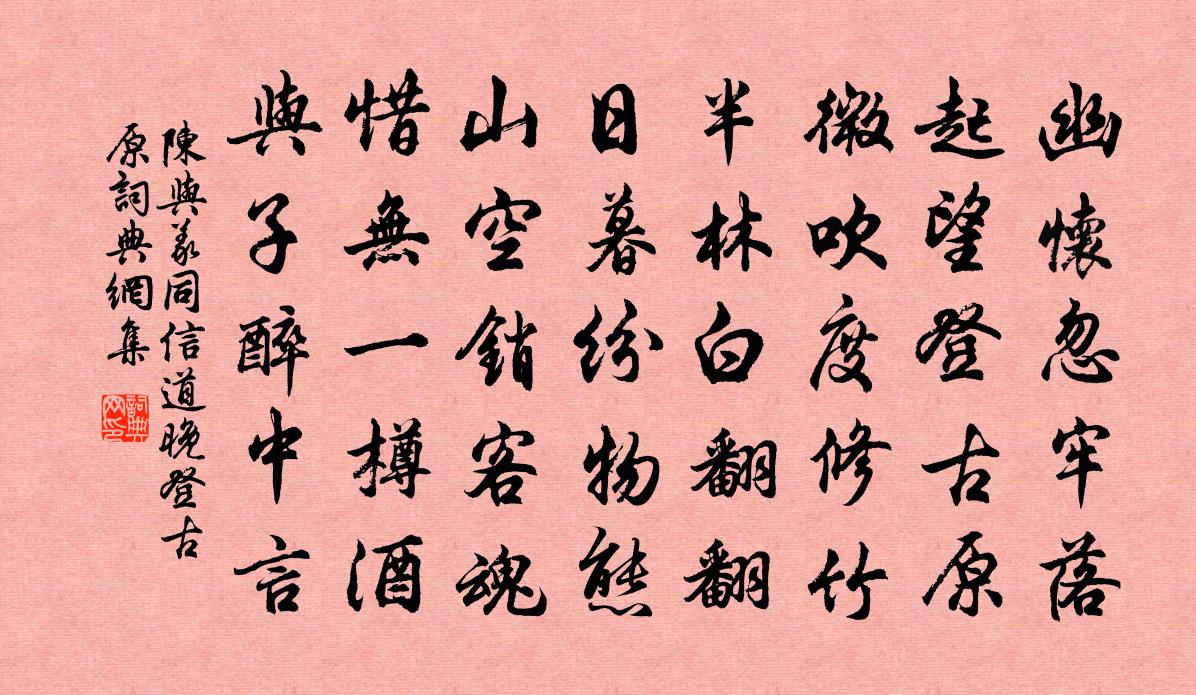 幽懷忽牢落
起望登古原
微吹度修竹
半林白翻翻
日暮紛物態
山空銷客魂
惜無一樽酒
與子醉中言
陳與義同信道晚登古
原詞典網集
詞典网印